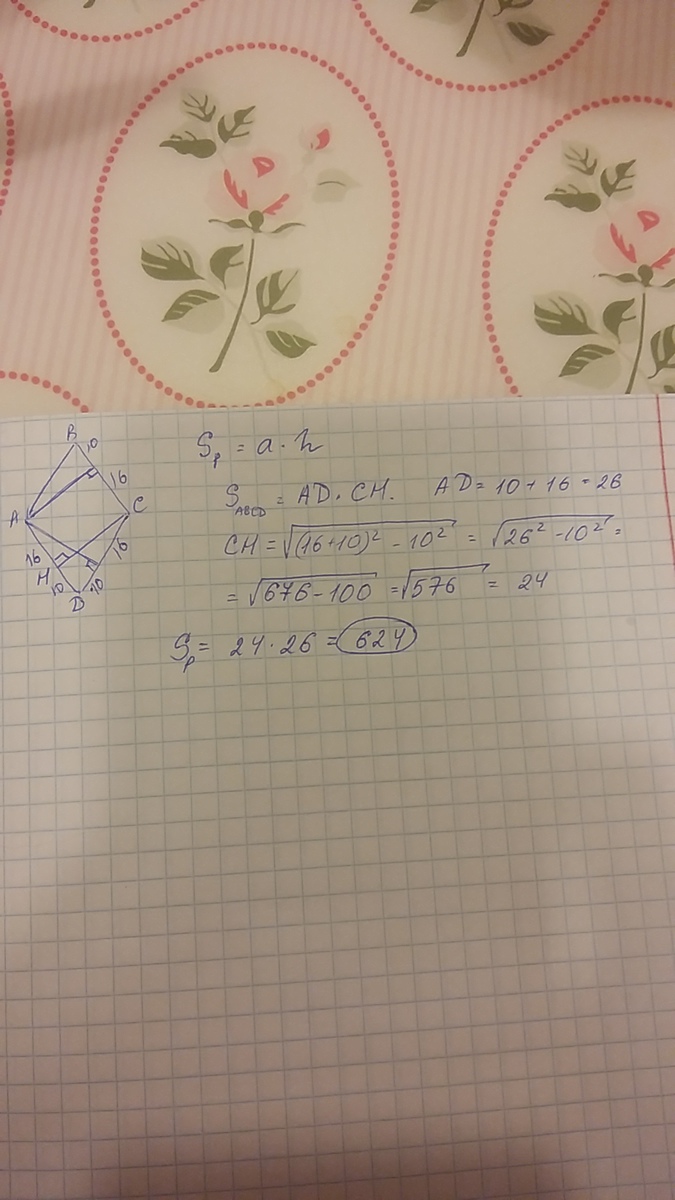 B
10
16
A
C
16
H
16
10
10
D
Sр = a · h
S ABCD = AD · CH. AD = 10 + 16 = 26
CH = √(16+10)² - 10² = √26² - 10² =
= √676 - 100 = √576 = 24
Sр = 24 · 26 = 624